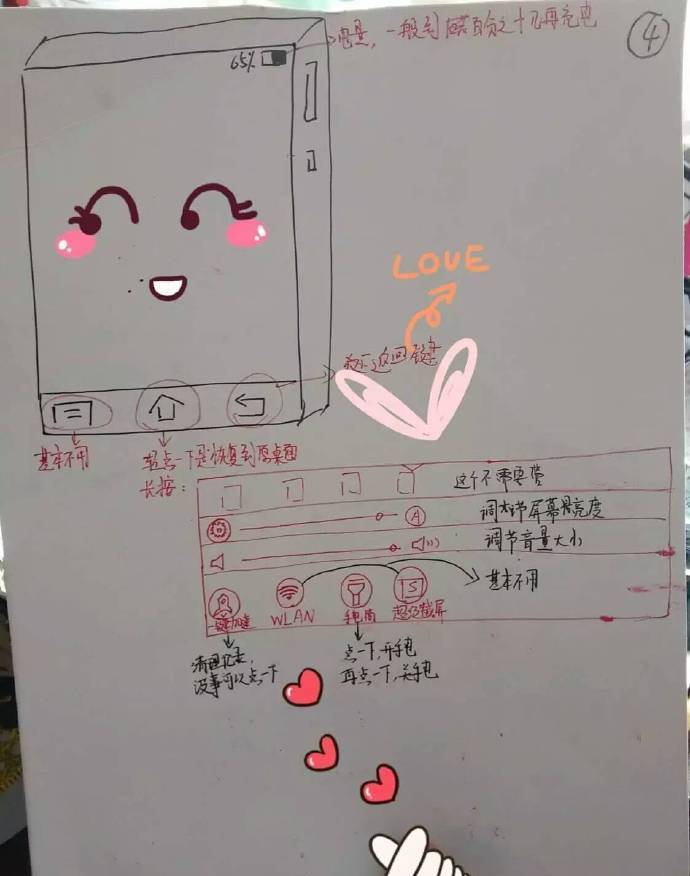 电量，一般到百分之十几再充电
④
65%
LOVE
返回键
基本不用
轻点一下是恢复到原桌面
长按：
这个不需要管
A
调节屏幕亮度
调节音量大小
一键加速
WLAN
手电筒
超级截屏
基本不用
清理
没事可以点一下
点一下，开手电
再点一下，关手电